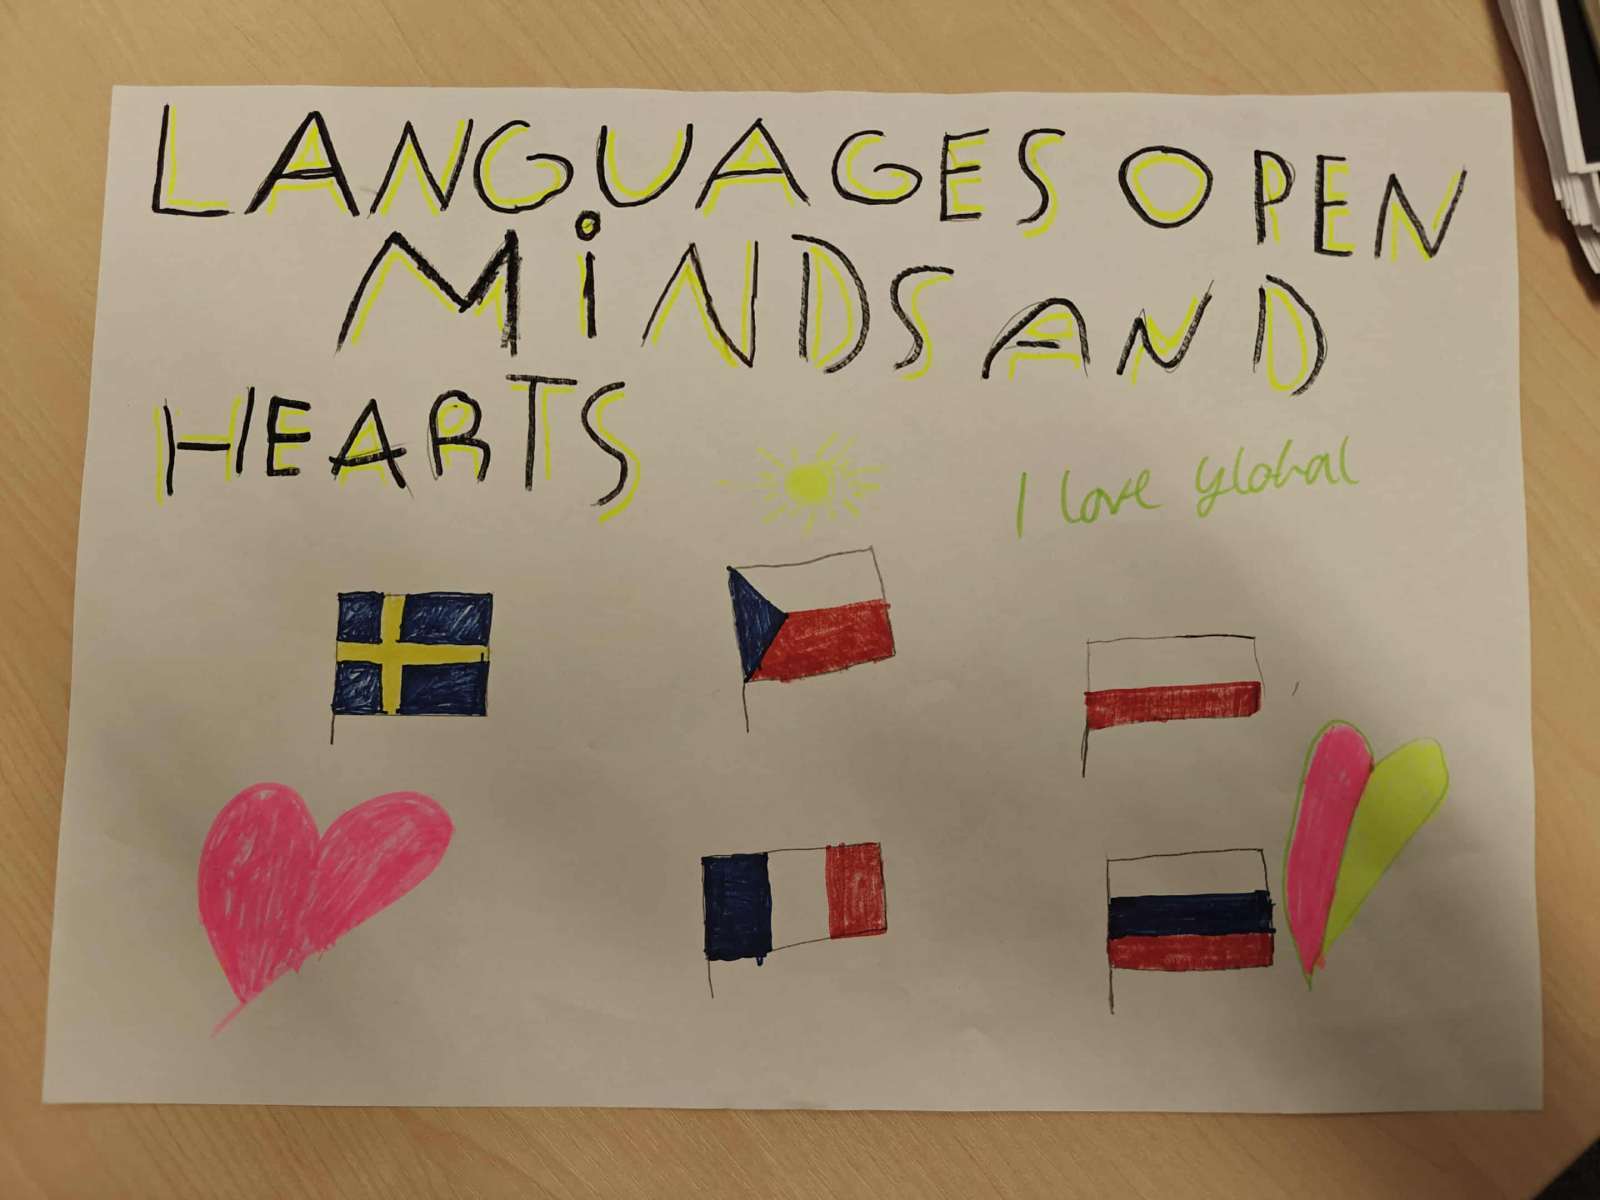 LANGUAGES OPEN
MiNDS AND
HEARTS
I love global